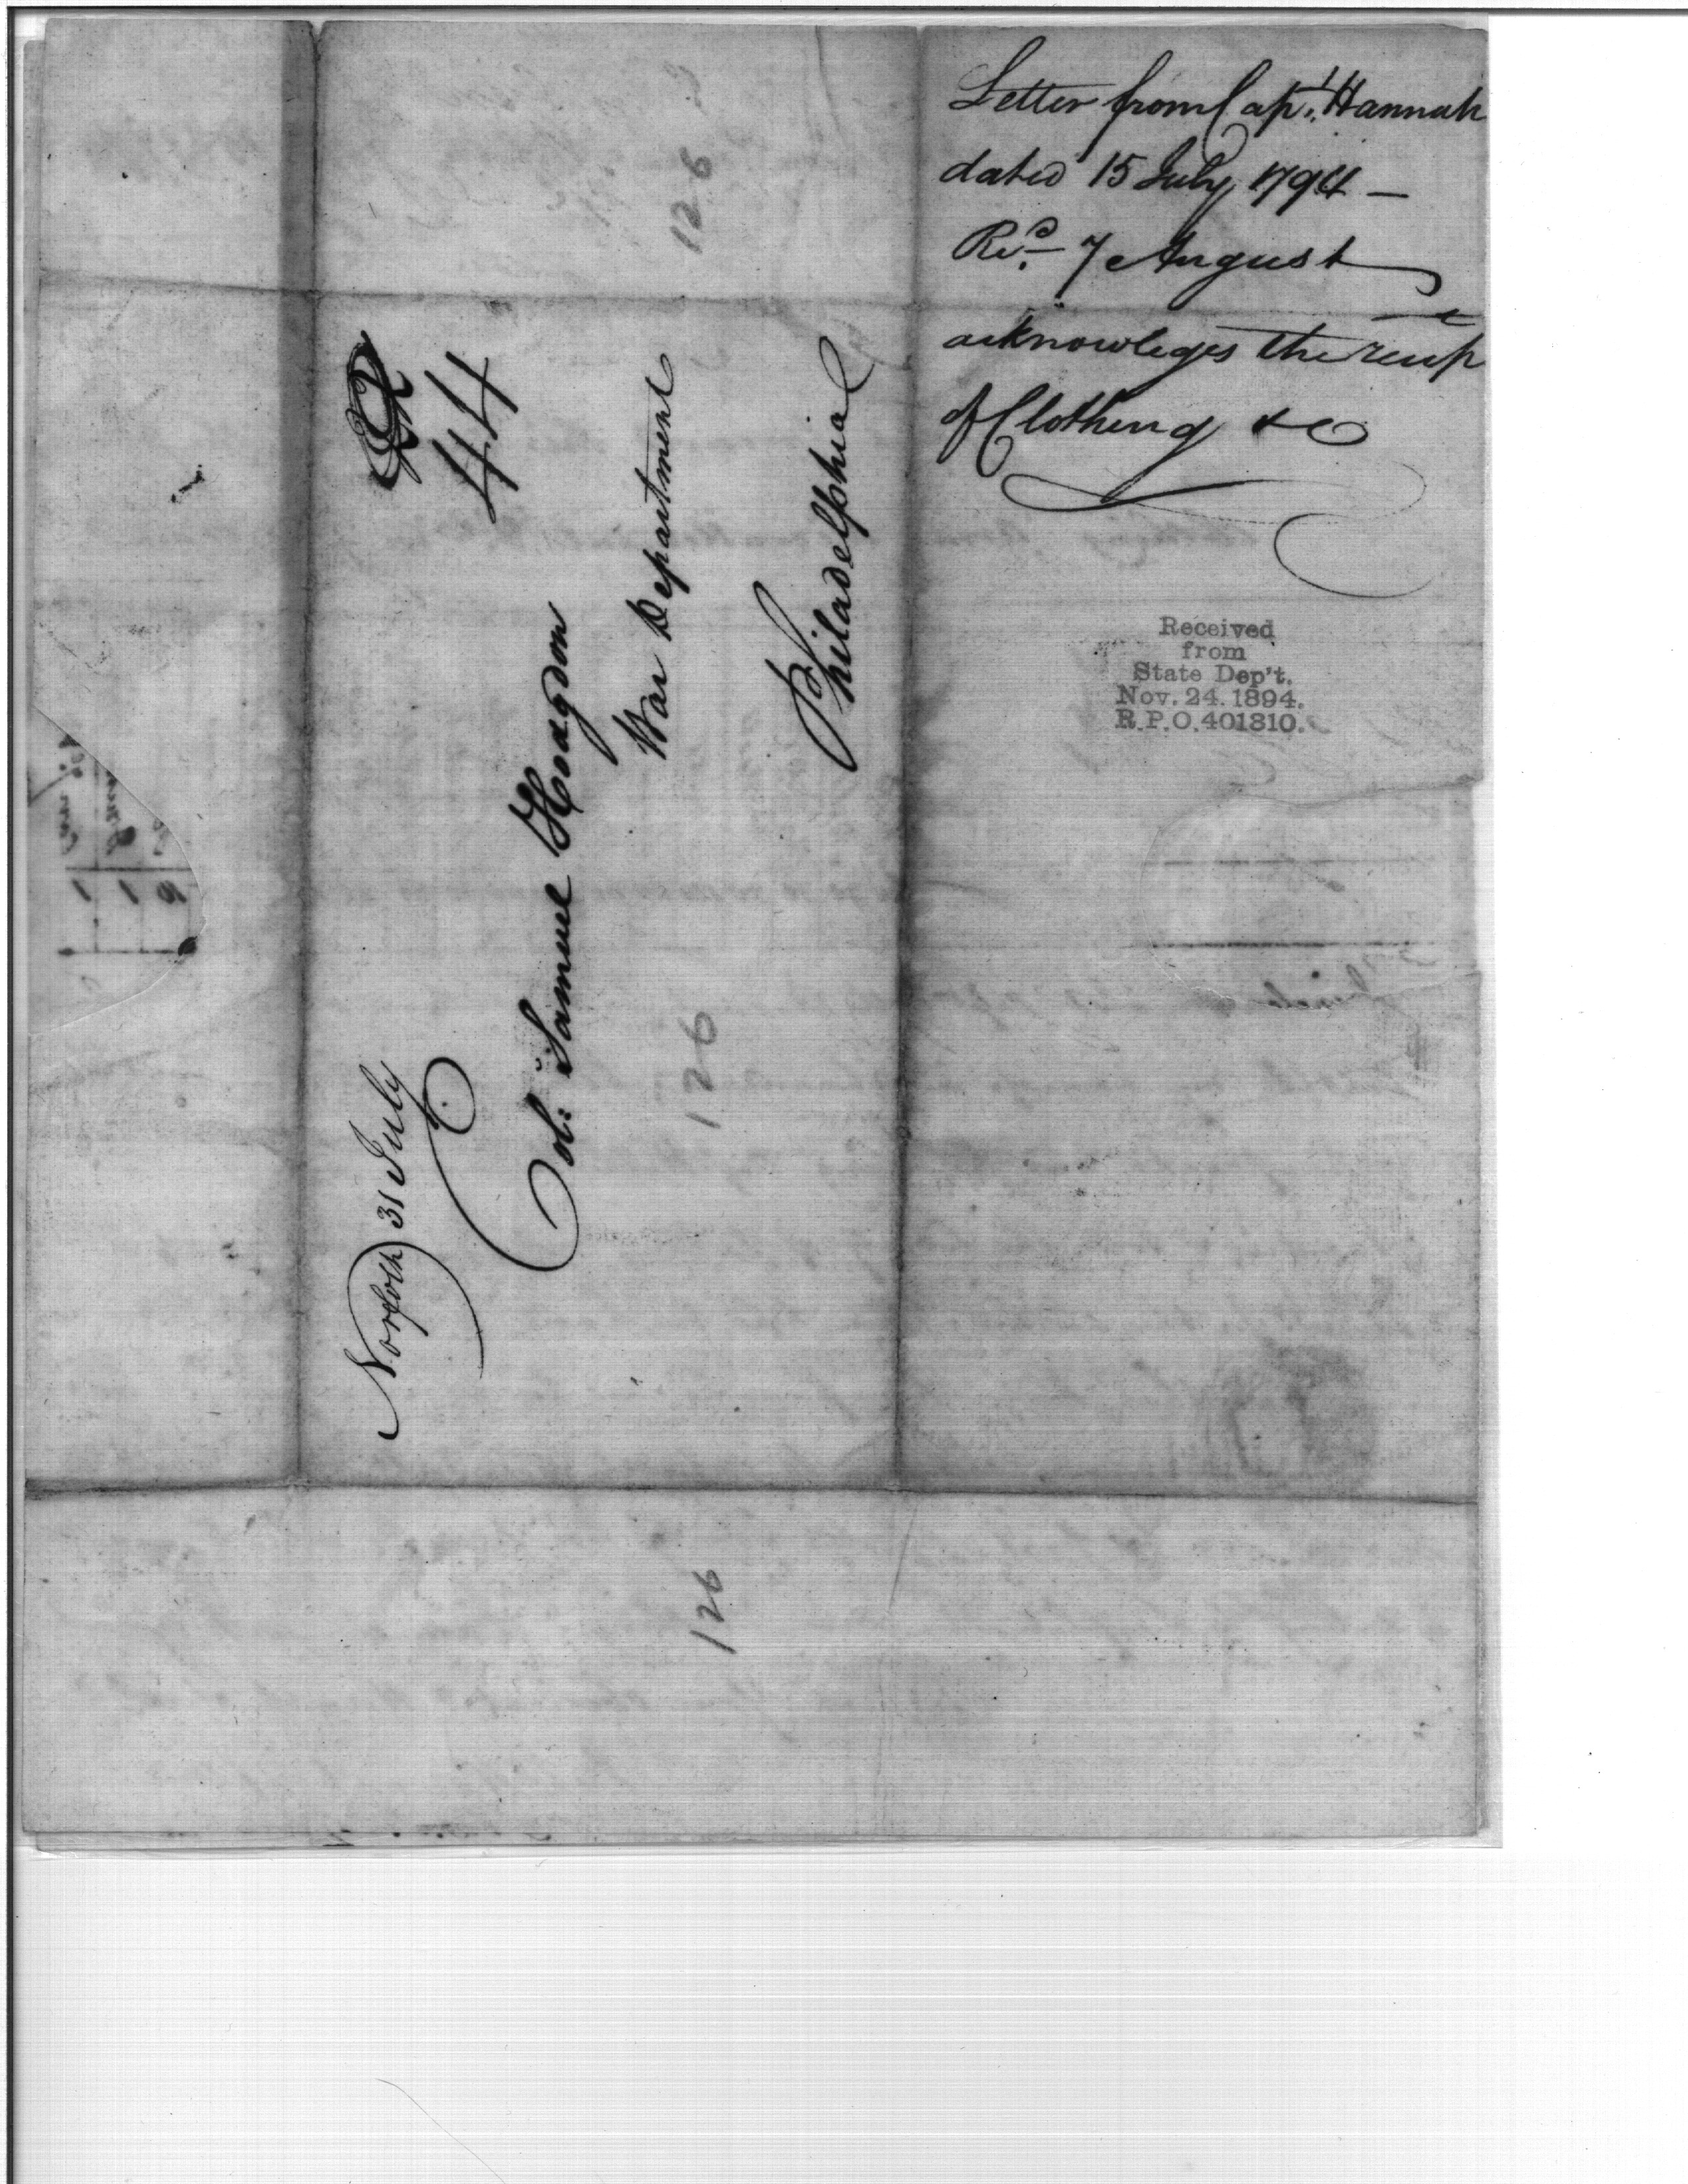 Letter from Capt. Hannah
dated 15 July 1794 —
Recd. 7 August
acknowleges the recipt
of Clothing &c
Received
from
State Dep't.
Nov. 24. 1894.
R.P.O. 401810.
Norfolk 31 July
44
Col: Samuel Hodgdon
War Department
Philadelphia
126
126
126